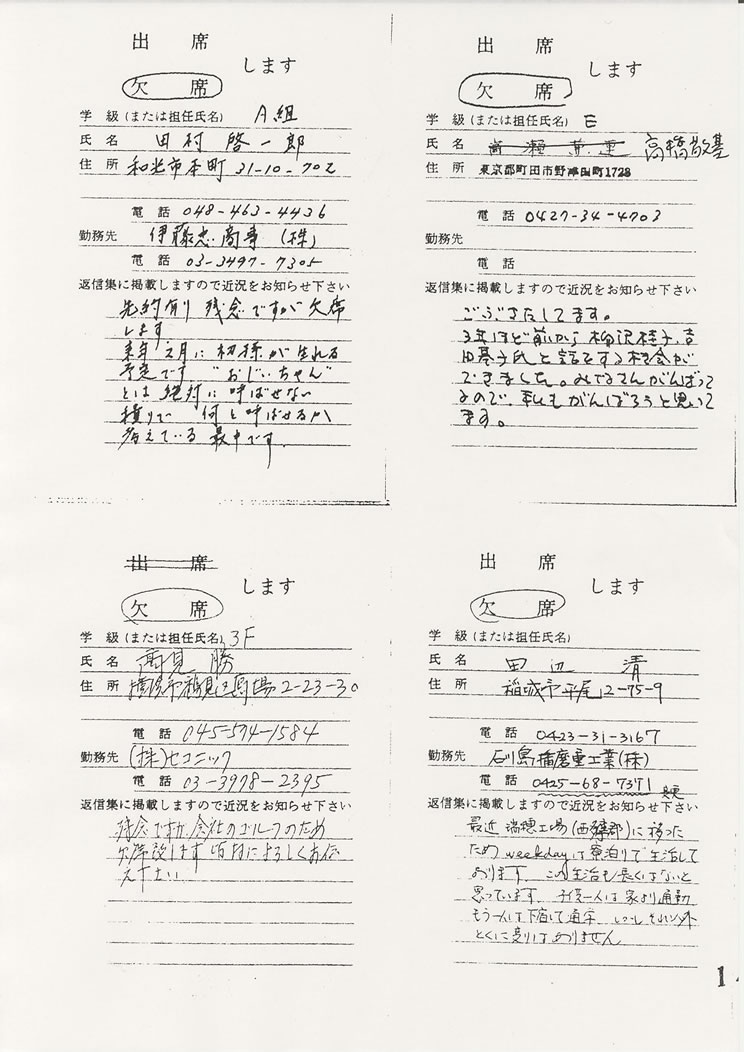 出席
します
欠席
学級(または担任氏名) A組
氏名 田村 啓一郎
住所 和光市本町 31-10-702
電話 048-463-4436
勤務先 伊藤忠商事(株)
電話 03-3497-7305
返信集に掲載しますので近況をお知らせ下さい
先約有り 残念ですが欠席
します
来年2月に初孫が生れる
予定です "おじいちゃん"
とは絶対に呼ばせない
積りで 何と呼ばせるか
考えている最中です.
出席
します
欠席
学級(または担任氏名) E
氏名 高橋
住所 東京都町田市野津田町1728
電話 0427-34-4703
勤務先
電話
返信集に掲載しますので近況をお知らせ下さい
ごぶさたしてます。
3年ほど前から柳沢桂子,吉
田基子氏と話をする機会が
できました。みなさんがんばって
るので、私もがんばろうと思いて
ます。
出席
します
欠席
学級(または担任氏名) 3F
氏名 勝
住所 横浜市鶴見区馬場2-23-30
電話 045-574-1584
勤務先 (株)セコニック
電話 03-3978-2395
返信集に掲載しますので近況をお知らせ下さい
残念ですが会社のゴルフのため
欠席致します 皆によろしくお伝
え下さい
出席
します
欠席
学級(または担任氏名)
氏名 田辺 清
住所 稲城市平尾 2-75-9
電話 0423-31-3167
勤務先 石川島播磨重工業(株)
電話 0425-68-7371
変更
返信集に掲載しますので近況をお知らせ下さい
最近 瑞穂工場(西多摩郡)に移った
ため weekdayは寮泊りで生活して
おります. この生活も長くはないと
思っています. 子供一人は家より通勤
もう一人は下宿して通学 しかし それ以外
とくに変りはありません
1